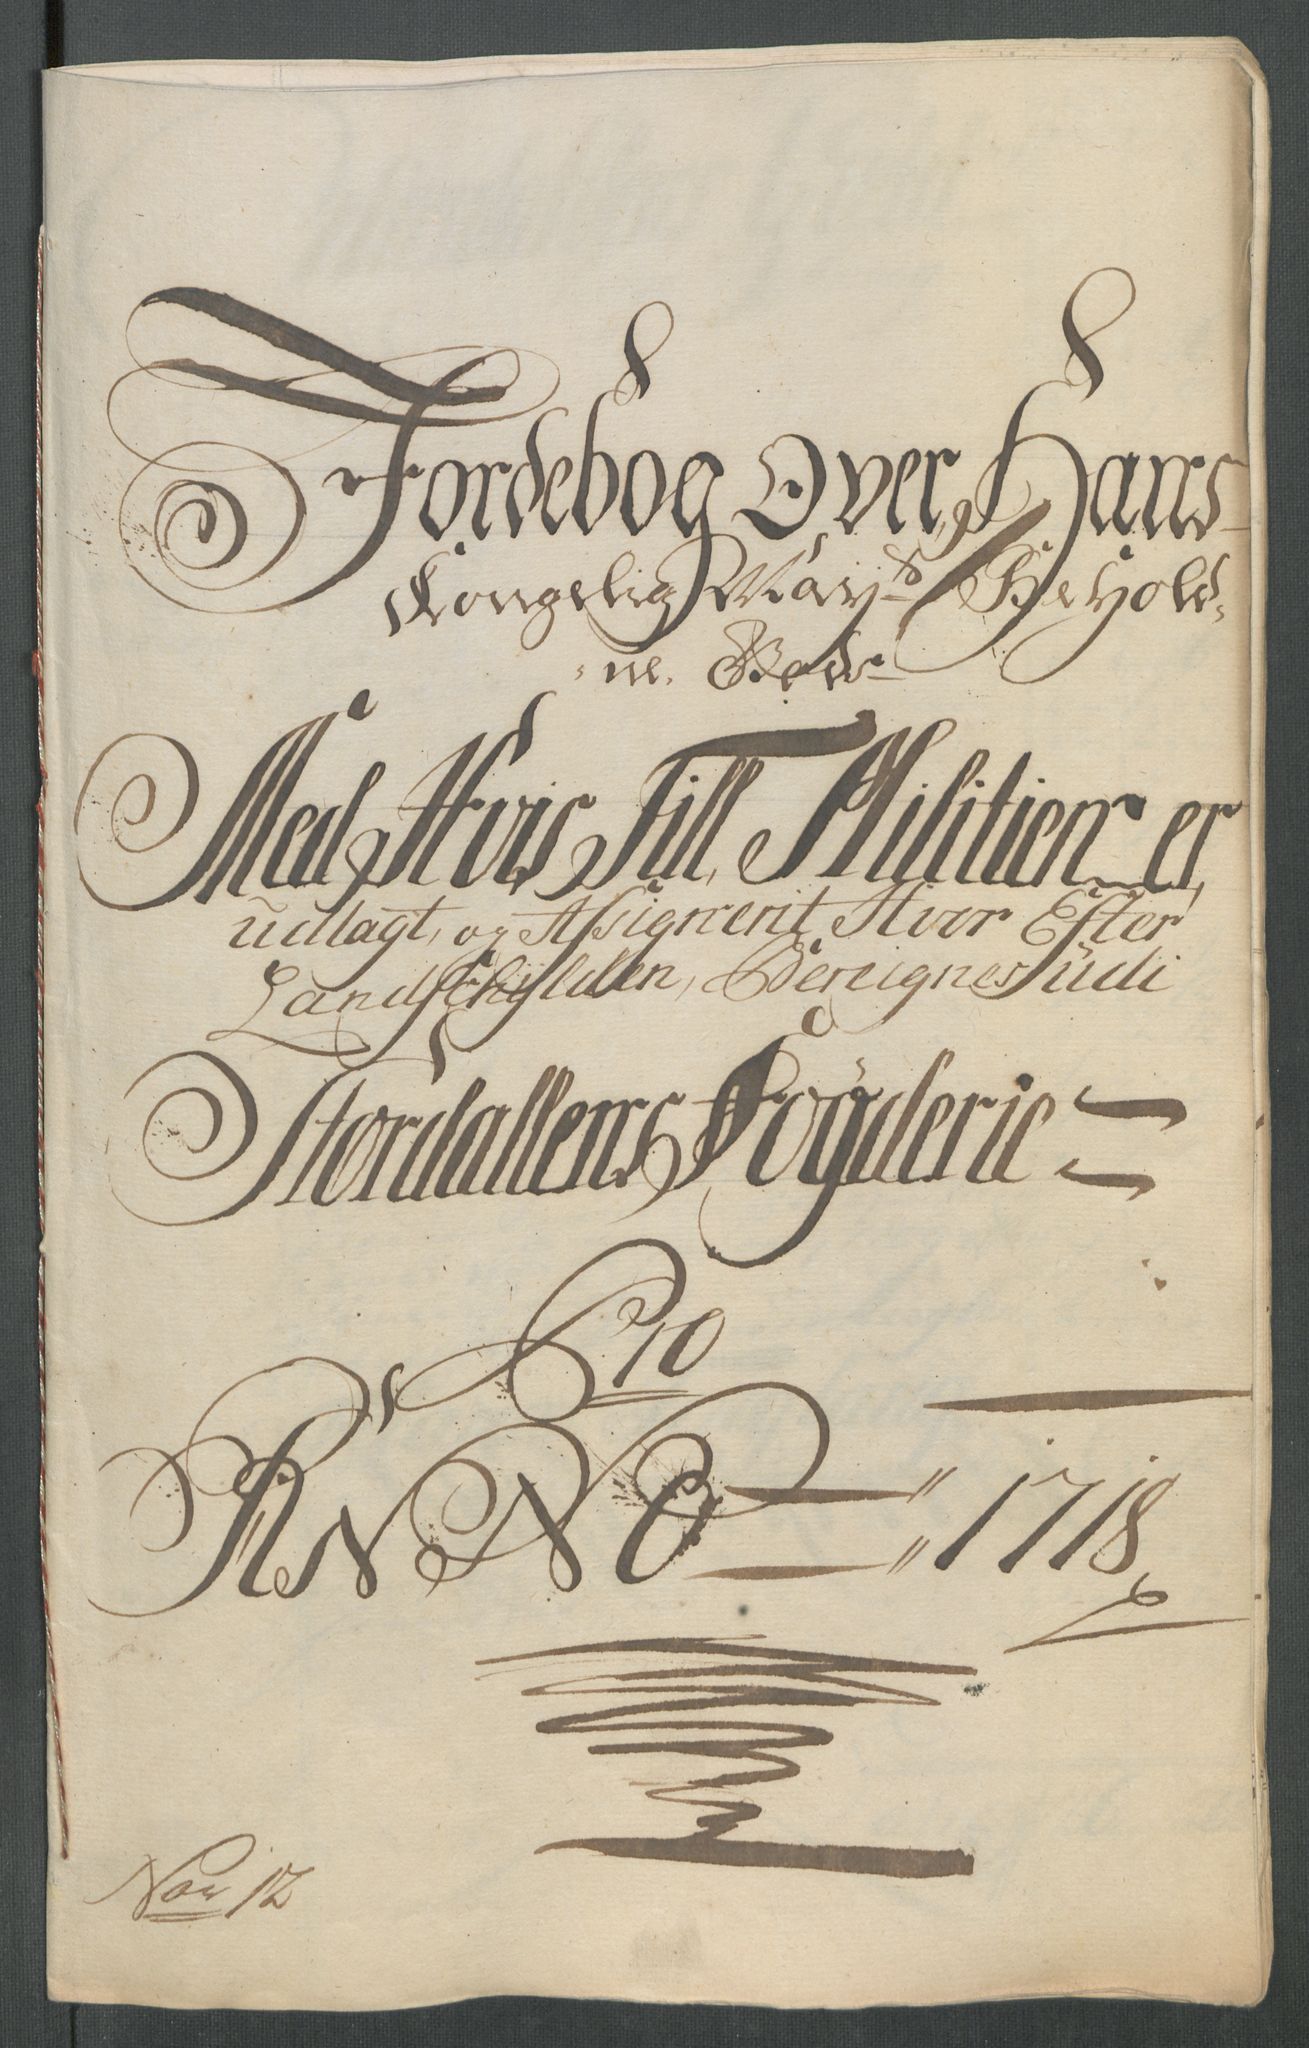 Jordebog Over Hans
Kongelig May:ts Behold-
-ne. Gods
Med Hvis Till Militien er
udlagt, og Assignerit Hvor Efter
Landschylden, Bereignes udi
Stordallens Fogderie
Pro
ANNO 1718
No 12